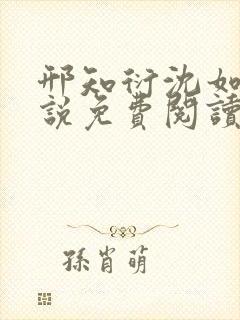 邢知衍沈如
說免費閱讀
孫肖萌